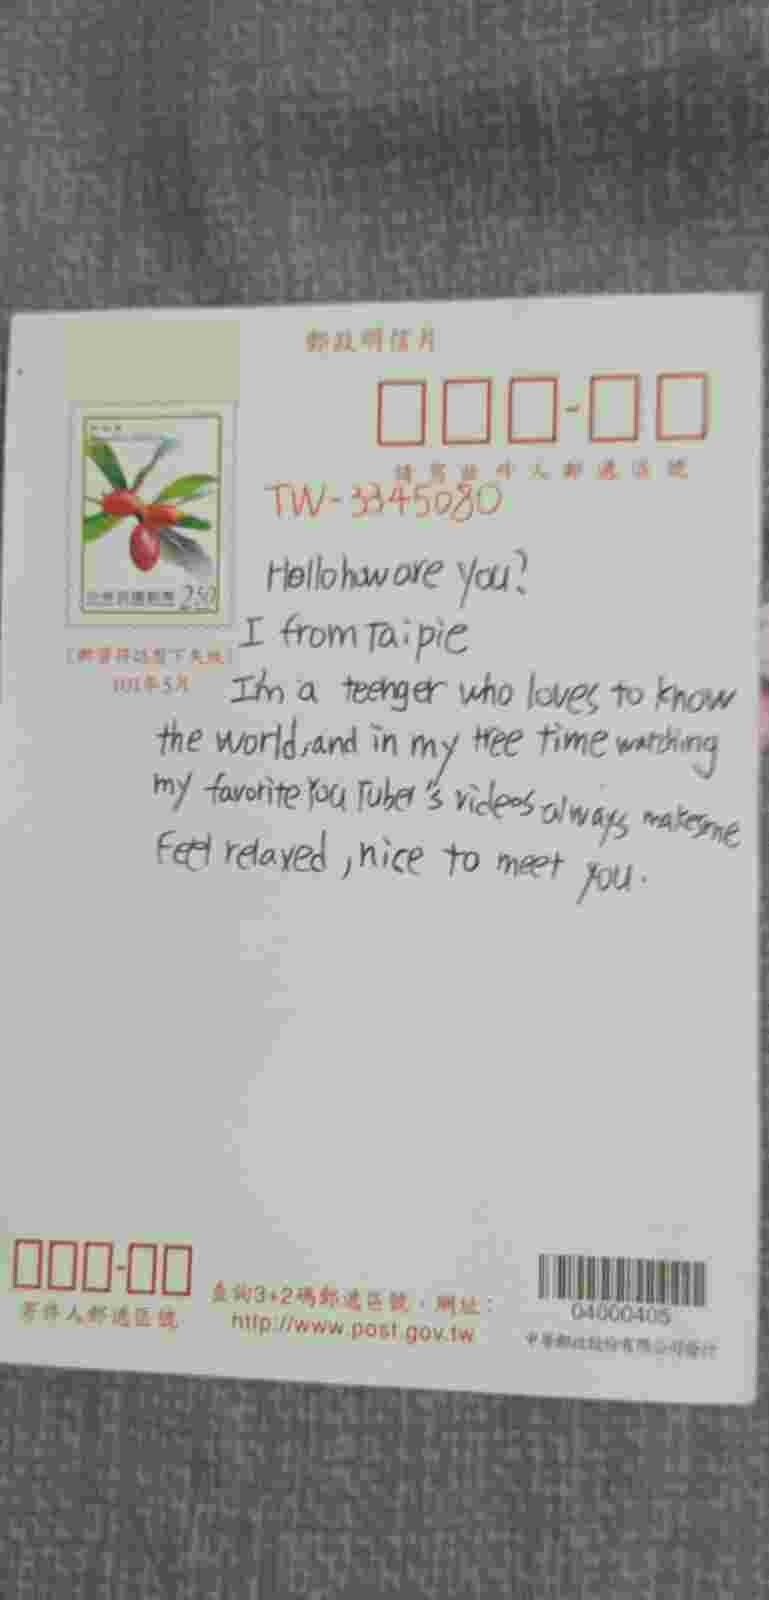 郵政明信片
請寫收件人郵遞區號
TW-3345080
Hello how are you?
I from Taipie
I'm a teenger who loves to know
the world, and in my free time watching
my favorite YouTuber's videos always makes me
Feel relaxed, nice to meet you.
中華民國郵票 250
(郵資符誌剪下失效)
101年5月
寄件人郵遞區號
查詢3+2碼郵遞區號,網址:
http://www.post.gov.tw
04000405
中華郵政股份有限公司發行